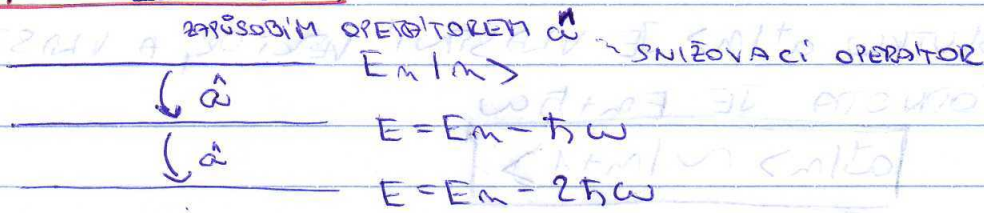 ZAPŮSOBÍM OPERÁTOREM â^n ~ SNIŽOVACÍ OPERÁTOR
En |n>
â
E = En - ħω
â
E = En - 2ħω